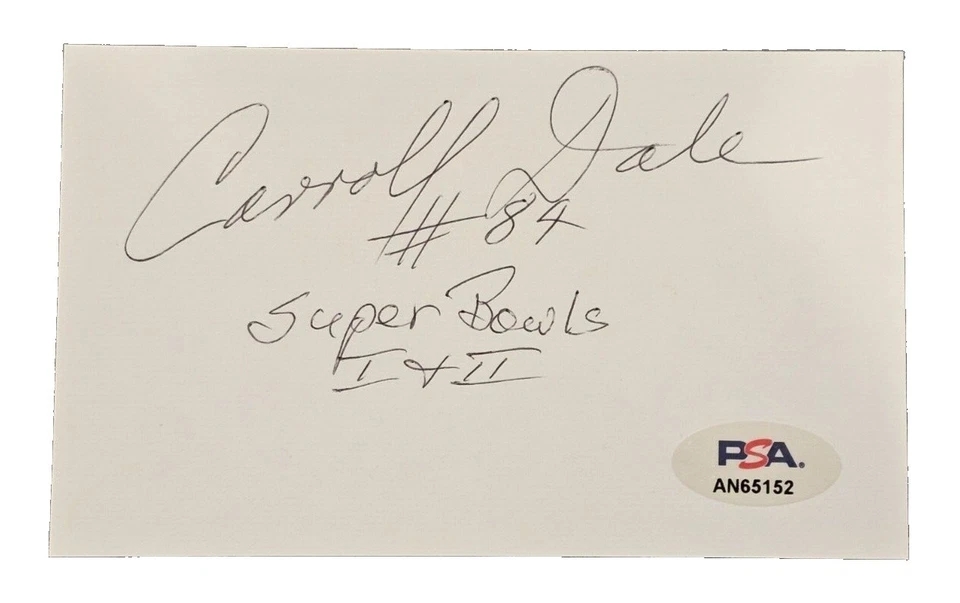 Carroll Dale
# 84
Super Bowls
I & II
PSA®
AN65152